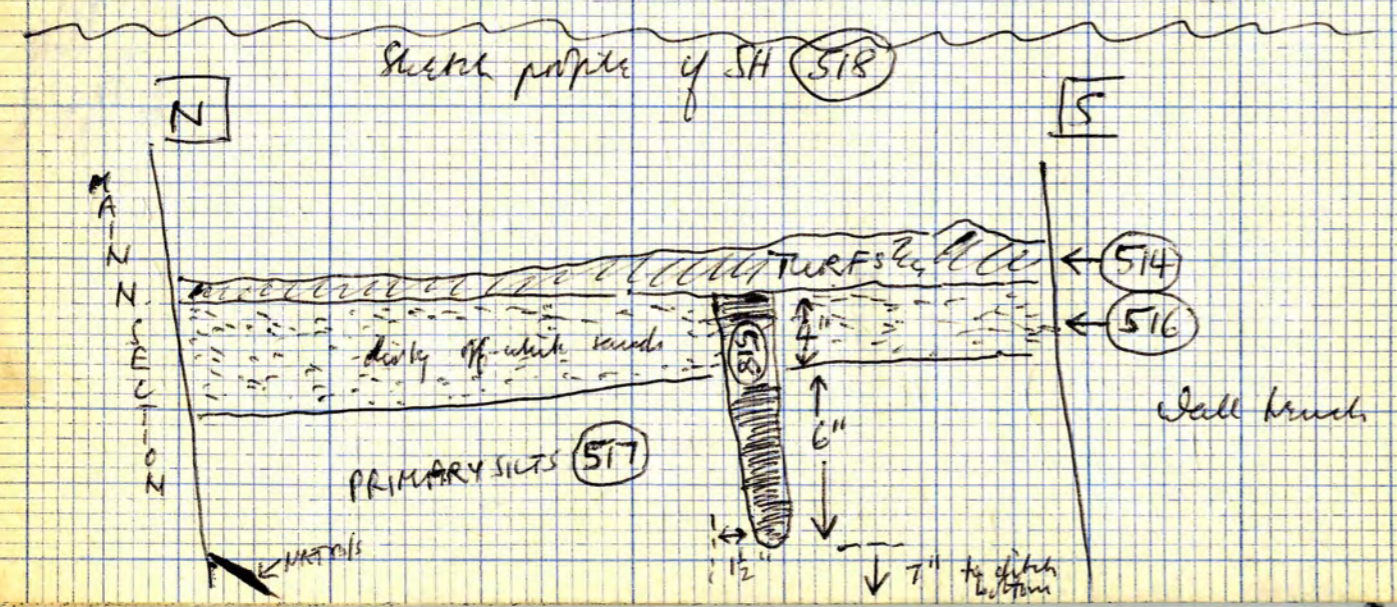 Sketch profile of SH 518
N
S
MAIN N. SECTION
TURFS
514
516
dirty off-white sands
518
4"
6"
Wall trench
PRIMARY SILTS 517
1½"
7" to ditch
bottom